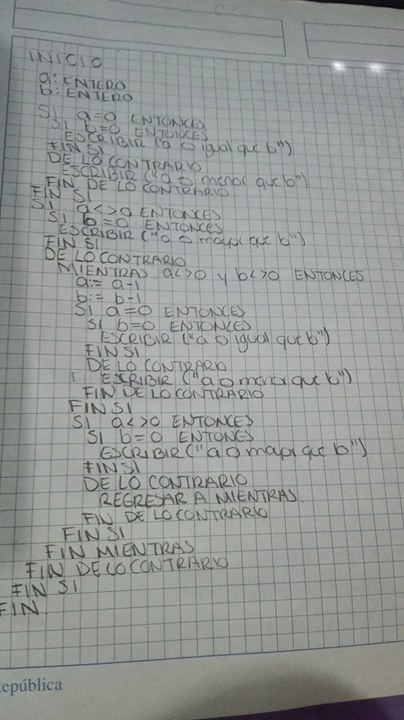 INICIO
a: ENTERO
b: ENTERO
SI a=0 ENTONCES
SI b=0 ENTONCES
ESCRIBIR ("a es igual que b")
FIN SI
DE LO CONTRARIO
ESCRIBIR ("a es menor que b")
FIN DE LO CONTRARIO
FIN SI
SI a<>0 ENTONCES
SI b=0 ENTONCES
ESCRIBIR ("a es mayor que b")
FIN SI
DE LO CONTRARIO
MIENTRAS a<>0 y b<>0 ENTONCES
a:= a-1
b:= b-1
SI a=0 ENTONCES
SI b=0 ENTONCES
ESCRIBIR ("a es igual que b")
FIN SI
DE LO CONTRARIO
ESCRIBIR ("a es menor que b")
FIN DE LO CONTRARIO
FIN SI
SI a<>0 ENTONCES
SI b=0 ENTONES
ESCRIBIR ("a es mayor que b")
FIN SI
DE LO CONTRARIO
REGRESAR A MIENTRAS
FIN DE LO CONTRARIO
FIN SI
FIN MIENTRAS
FIN DE LO CONTRARIO
FIN SI
FIN
epública